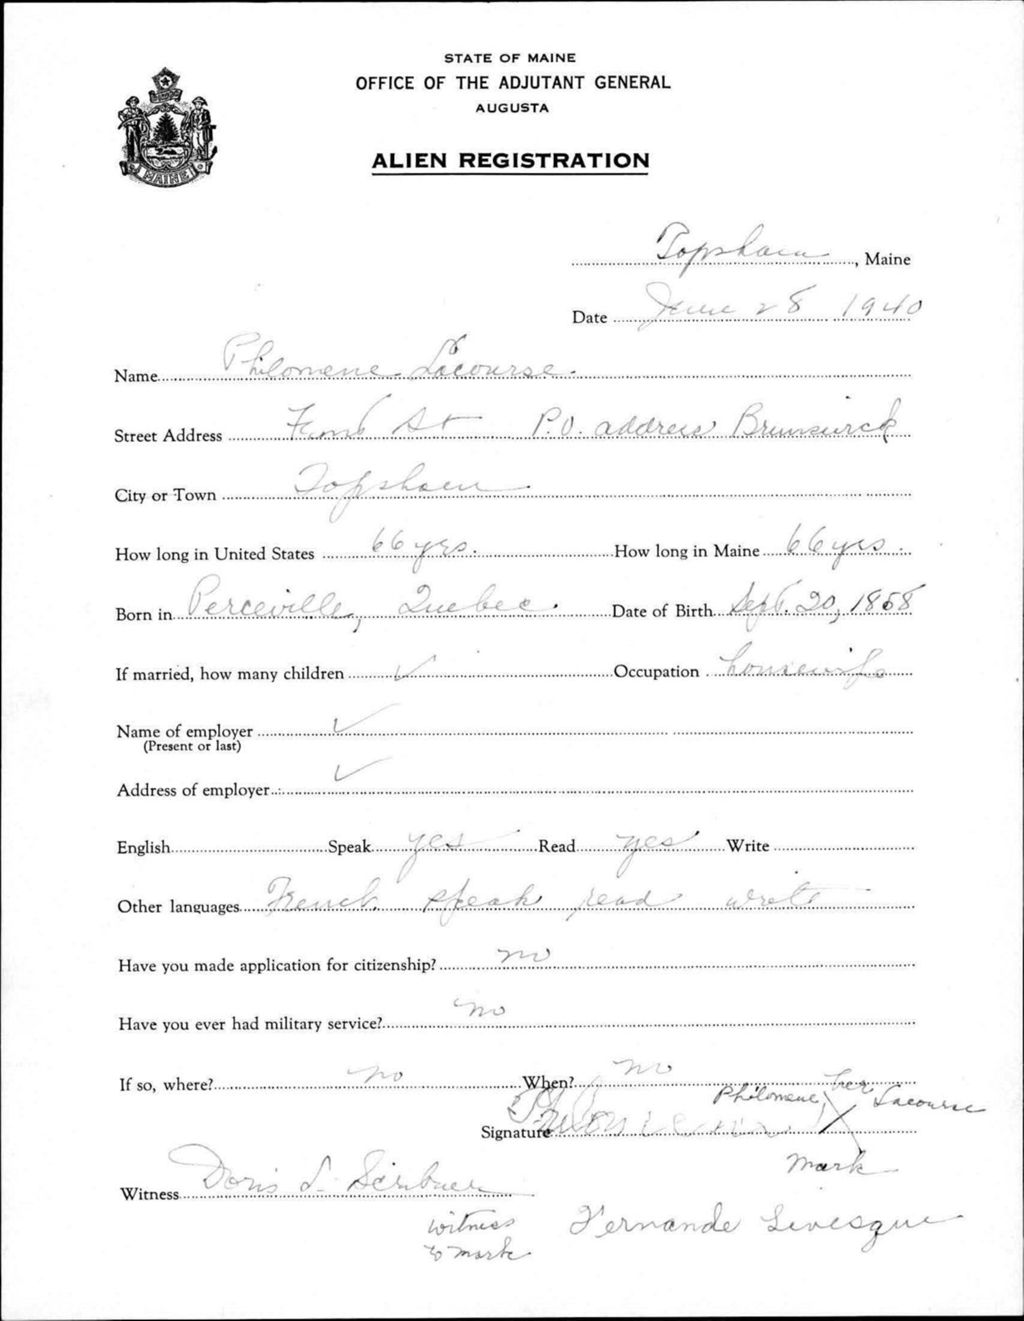 STATE OF MAINE
OFFICE OF THE ADJUTANT GENERAL
AUGUSTA
ALIEN REGISTRATION
MAINE
Topsham, Maine
Date June 28 1940
Name Philomene Lacourse
Street Address St P.O. address Brunswick
City or Town Topsham
How long in United States 66 yrs. How long in Maine 66 yrs.
Born in Perceville, Quebec. Date of Birth Sept. 20, 1858
If married, how many children ✓ Occupation housewife
Name of employer ✓
(Present or last)
Address of employer ✓
English Speak yes Read yes Write
Other languages French speak read write
Have you made application for citizenship? no
Have you ever had military service? no
If so, where? no When? no
Philomene her X Lacourse
Signature
mark
Witness Doris L. Scribner
witness to mark Fernande Levesque